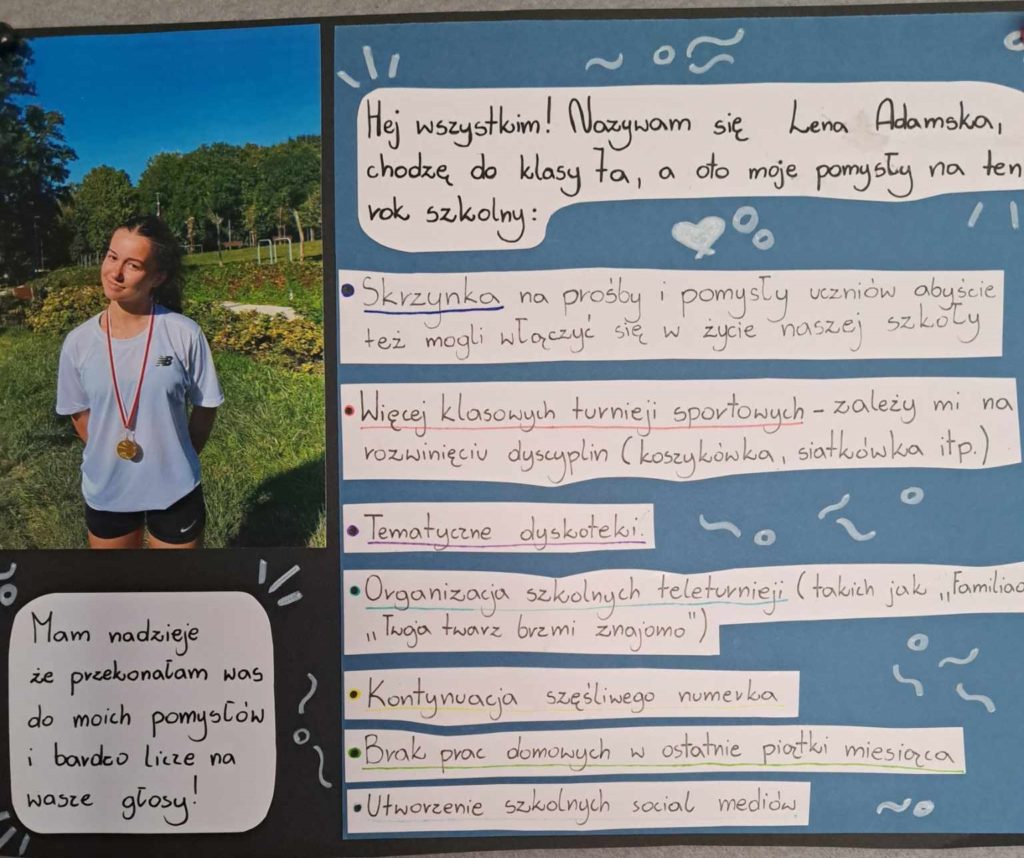 Hej wszystkim! Nazywam się Lena Adamska,
chodzę do klasy 7a, a oto moje pomysły na ten
rok szkolny:
• Skrzynka na prośby i pomysły uczniów abyście
też mogli włączyć się w życie naszej szkoły
• Więcej klasowych turnieji sportowych - zależy mi na
rozwinięciu dyscyplin (koszykówka, siatkówka itp.)
• Tematyczne dyskoteki.
• Organizacja szkolnych teleturnieji (takich jak
„Twoja twarz brzmi znajomo")
• Kontynuacja szęśliwego numerka
• Brak prac domowych w ostatnie piątki miesiąca
• Utworzenie szkolnych social mediów
Mam nadzieje
że przekonałam was
do moich pomysłów
i bardzo licze na
wasze głosy!